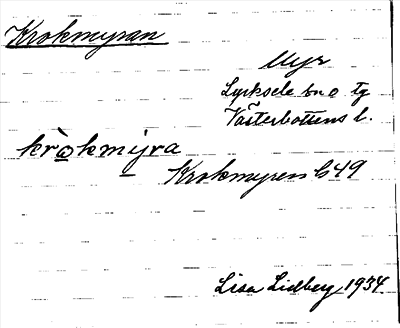 Krokmyran
Myr
Lycksele sn o tg
Västerbottens l.
kròkmyra
Krokmyren G49
Lisa Lidberg 1934.